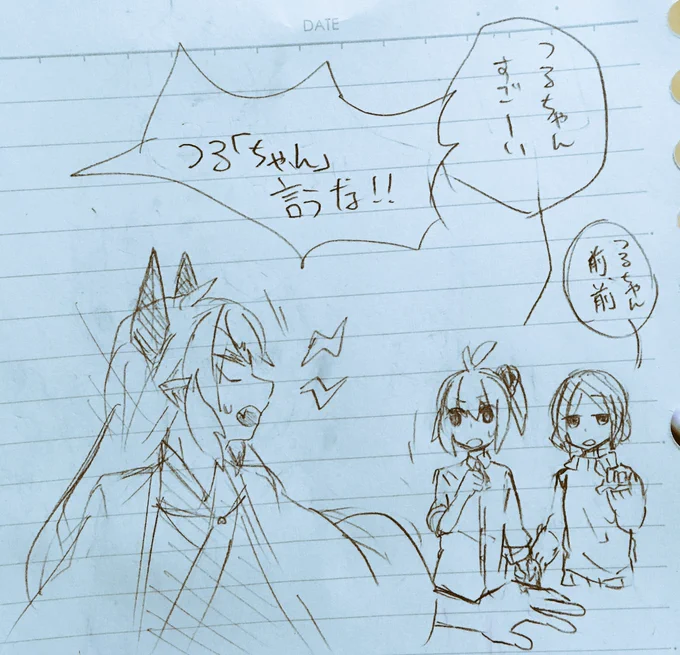 DATE
つるちゃん
すごーい
つる「ちゃん」
言うな!!
つるちゃん
前、前